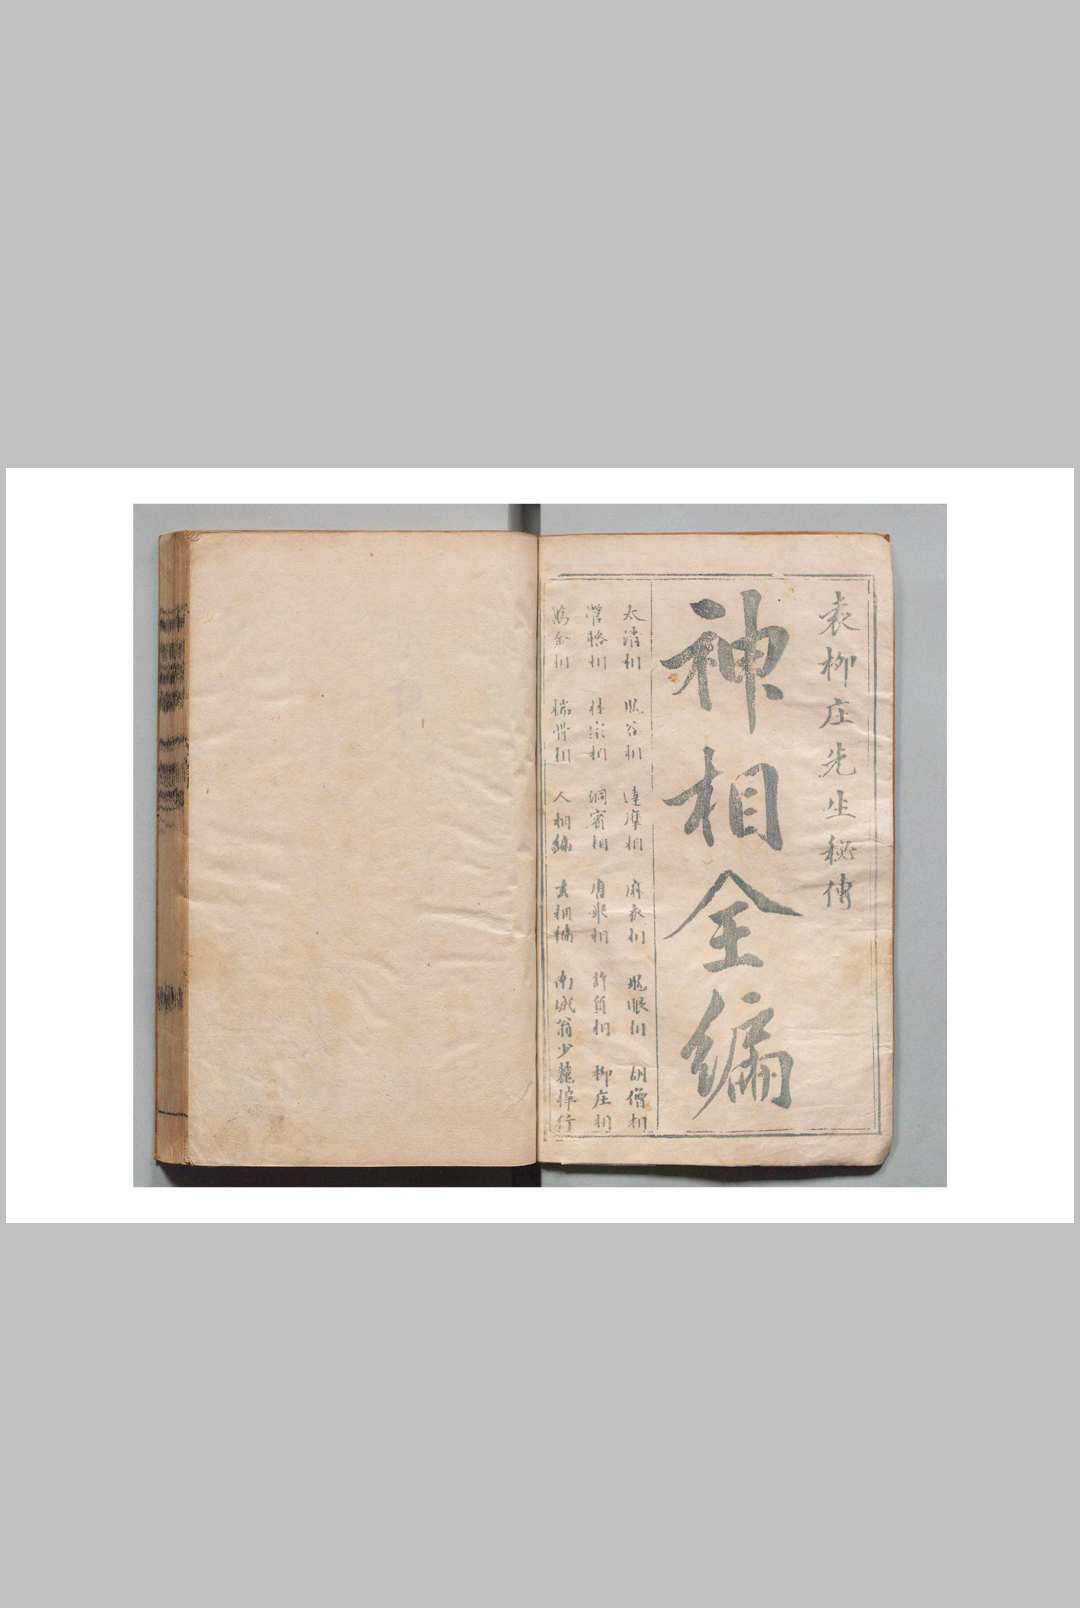 袁柳庄先生秘傳
神相全編
太清相 鬼谷相 達摩相 麻衣相 鬼眼相 胡僧相
管輅相 林宗相 洞賓相 唐舉相 許負相 柳庄相
金相 揣骨相 人相編 玄相編 南城翁少龍梓行